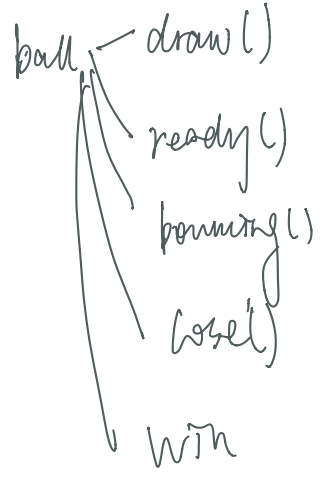 ball
draw()
ready()
bouncing()
lose()
win